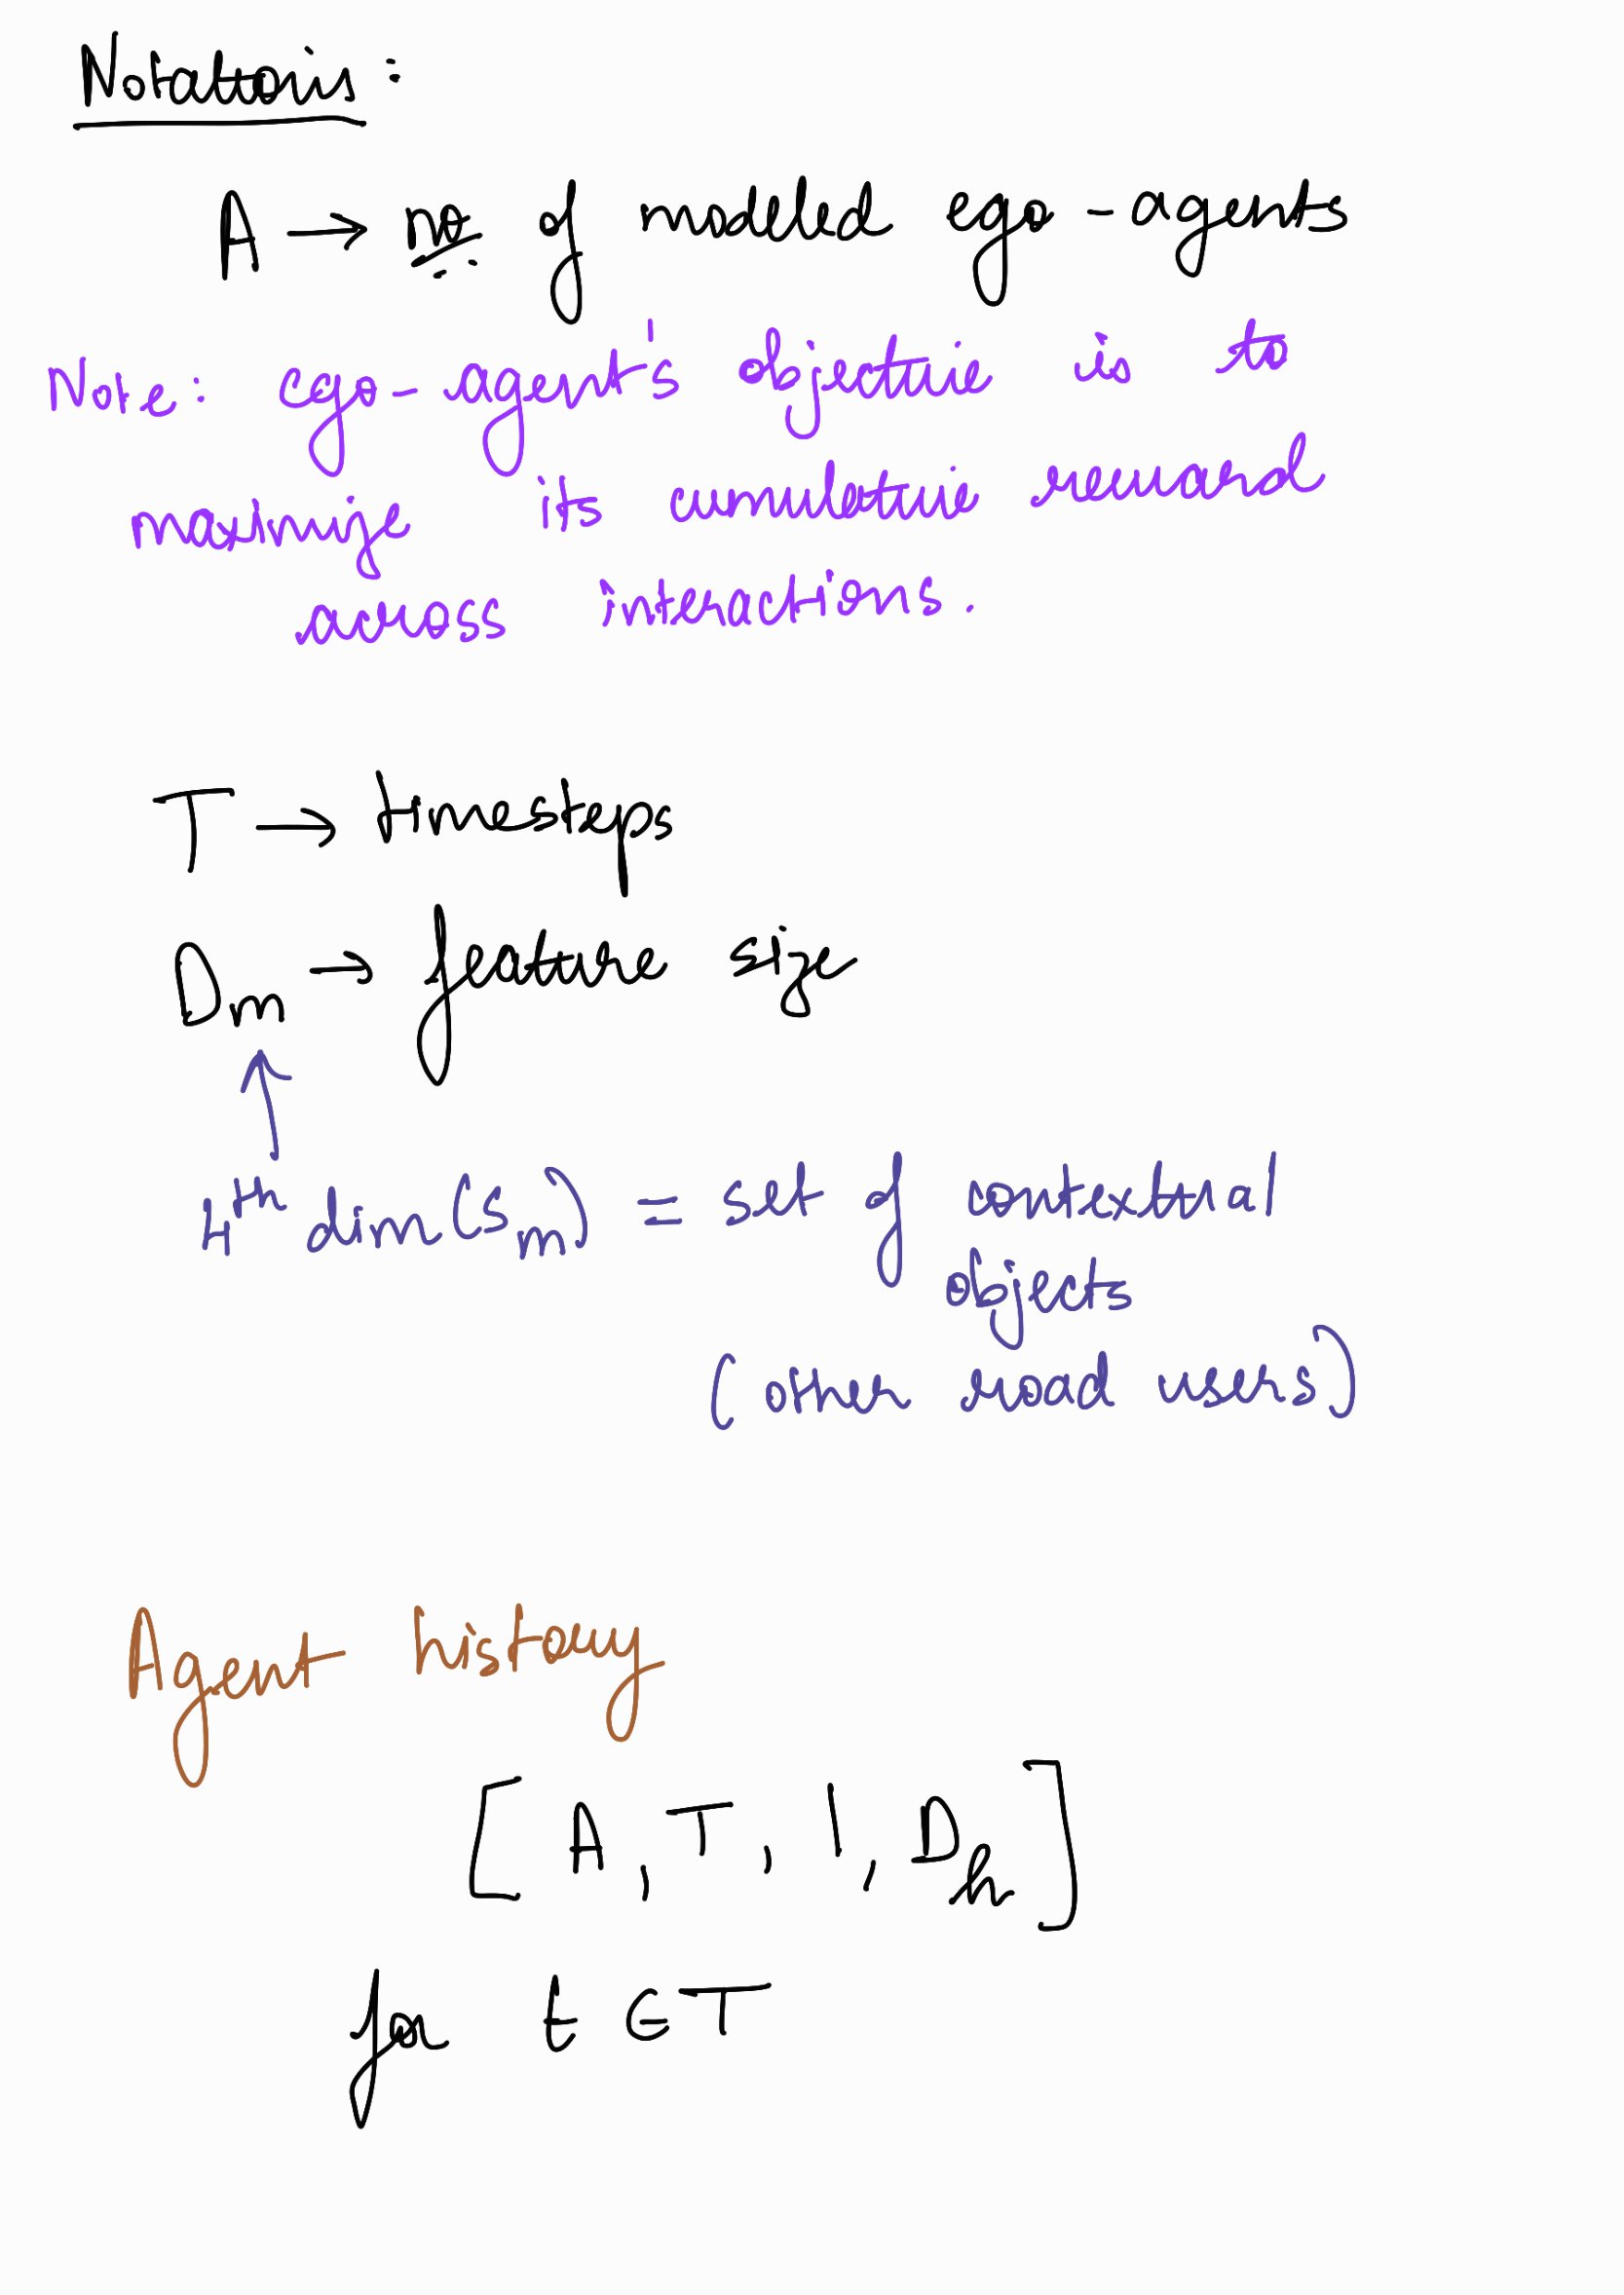 Notations:
A → no of modeled ego-agents
Note: ego-agent's objective is to
maximize its cumulative reward
across interactions.
T → timesteps
Dm → feature size
4th dim(Sm) = set of contextual
objects
(other road users)
Agent history
[A, T, 1, Dh]
for t ∈ T